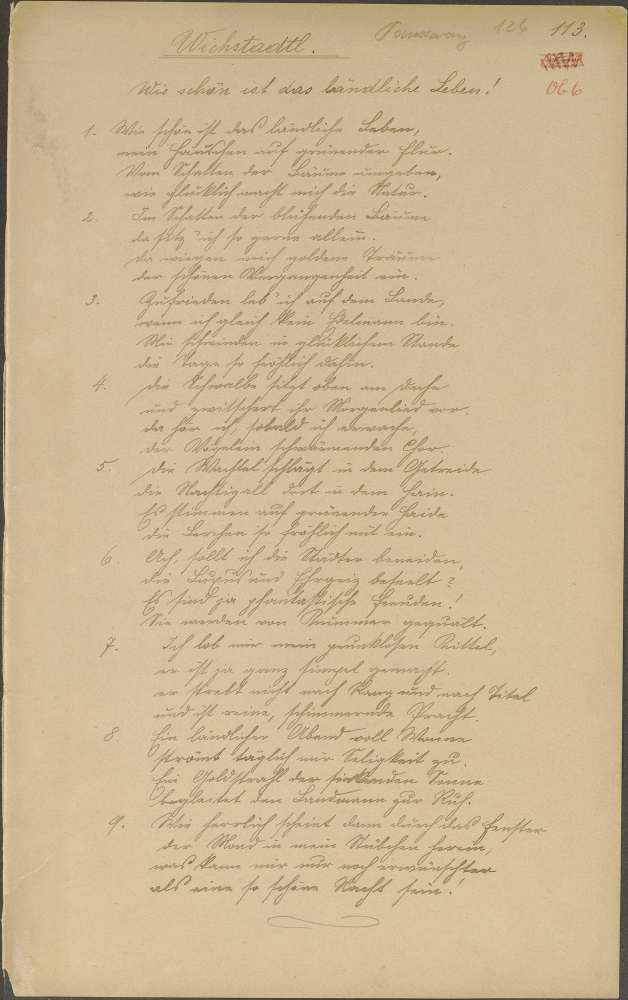 Wichstadtl. 126 113.
066
Wie schön ist das ländliche Leben!
1. Wie schön ist das ländliche Leben,
mein Häuschen auf grünender Flur.
Vom Schatten der Bäume umgeben,
wie glücklich macht mich die Natur.
2. Im Schatten der blühenden Bäume
da sitz' ich so gerne allein.
Da wiegen mich goldene Träume
der schönen Vergangenheit ein.
3. Zufrieden leb' ich auf dem Lande,
wenn ich gleich kein Edelmann bin.
Mir schwinden in glücklichem Stande
die Tage so fröhlich dahin.
4. Die Schwalbe sitzt oben am Dache
und zwitschert ihr Morgenlied vor.
Da hör' ich, sobald ich erwache,
der Vöglein schwärmenden Chor.
5. Die Wachtel schlägt in dem Getreide
die Nachtigall dort in dem Hain.
Es stimmen auf grünender Heide
die Lerchen so fröhlich mit ein.
6. Ach, sollt ich die Städter beneiden,
die Luxus und Ehrgeiz beseelt?
Es sind ja phantastische Freuden!
Sie werden von Kummer gequält.
7. Ich lob mir mein prunklosen Kittel,
er ist ja ganz simpel gemacht.
er strebt nicht nach Rang und nach Titel
und ist reine, schimmernde Pracht.
8. Ein ländlicher Abend voll Wonne
strömt täglich mir Seligkeit zu.
Ein Goldstrahl der sinkenden Sonne
begleitet den Landmann zur Ruh.
9. Wie herrlich scheint dann durch das Fenster
der Mond in mein Stübchen herein,
was kann mir nur noch erwünschter
als eine so schöne Nacht sein!